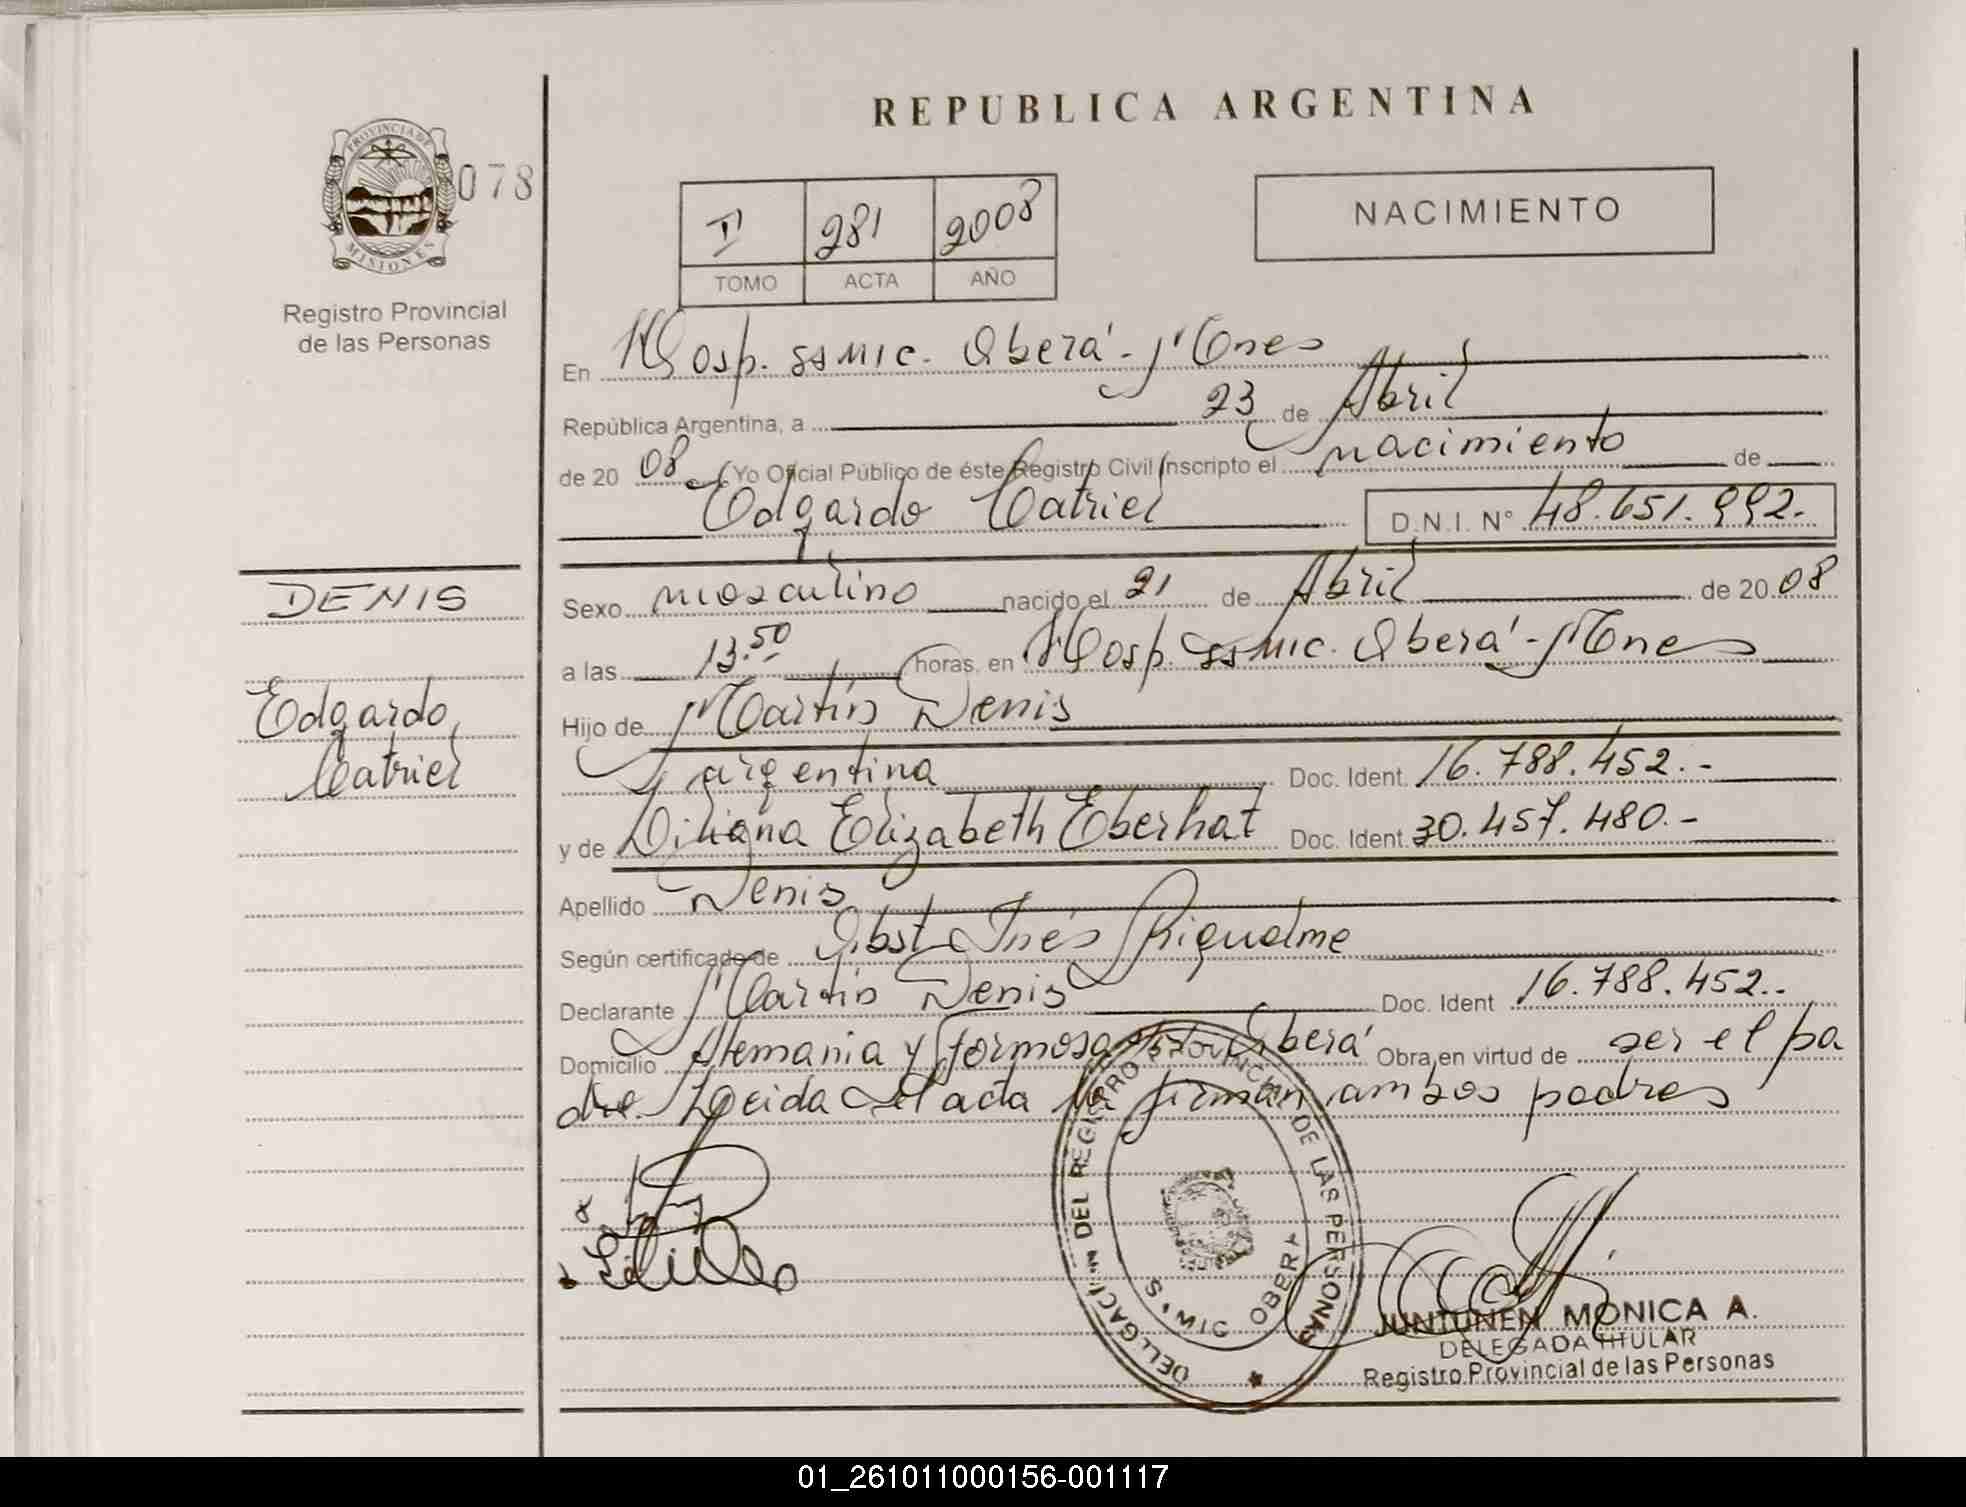 REPUBLICA ARGENTINA
PROVINCIA DE
MISIONES
078
Registro Provincial
de las Personas
I 281 2008
TOMO ACTA AÑO
NACIMIENTO
En Hosp. SSMIC. Oberá - Mnes
República Argentina, a 23 de Abril
de 20 08 Yo Oficial Público de éste Registro Civil Inscripto el nacimiento de
Edgardo Catriel D.N.I. N° 48.651.992.-
DENIS
Edgardo
Catriel
Sexo masculino nacido el 21 de Abril de 20 08
a las 13.50 horas, en Hosp. SSMIC. Oberá - Mnes
Hijo de Martín Denis
argentina Doc. Ident. 16.788.452.-
y de Liliana Elizabeth Eberhat Doc. Ident. 30.457.480.-
Apellido Denis
Según certificado de Obst. Inés Riquelme
Declarante Martín Denis Doc. Ident 16.788.452.-
Domicilio Alemania y Formosa Oberá Obra en virtud de ser el pa
dre. Leida el acta la firman ambos padres
DEL REGISTRO PROVINCIAL DE LAS PERSONAS
OBERA
JUNTUNEN MONICA A.
DELEGADA TITULAR
Registro Provincial de las Personas
01_261011000156-001117